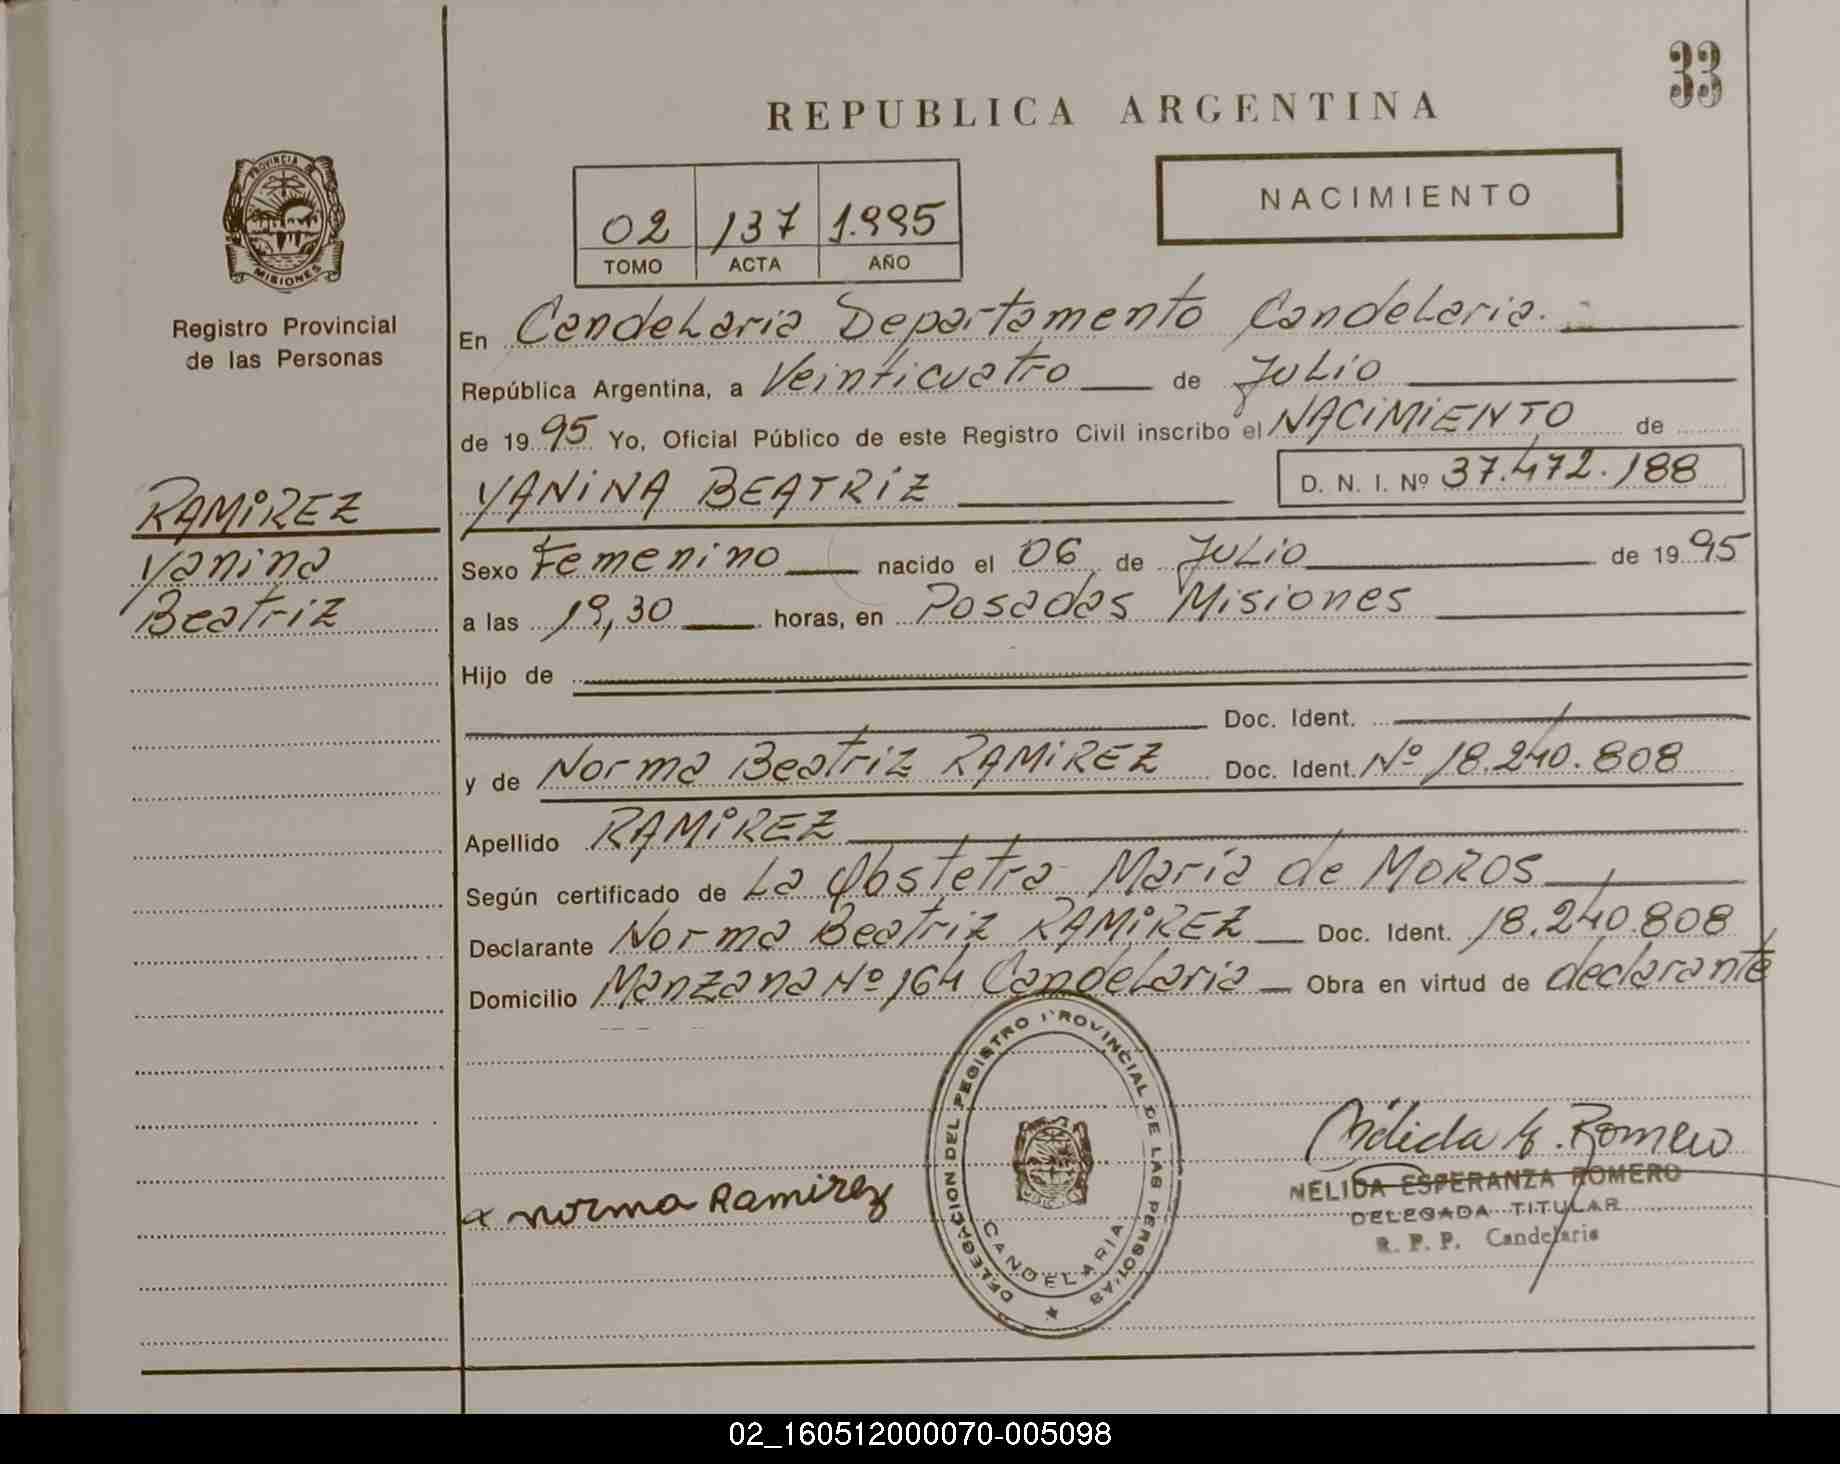 33
REPUBLICA ARGENTINA
PROVINCIA DE
MISIONES
Registro Provincial
de las Personas
NACIMIENTO
02 137 1.995
TOMO ACTA AÑO
En Candelaria Departamento Candelaria.
República Argentina, a Veinticuatro de Julio
de 19 95 Yo, Oficial Público de este Registro Civil inscribo el NACIMIENTO de
YANINA BEATRIZ D. N. I. Nº 37.472.188
RAMIREZ
Yanina
Beatriz
Sexo Femenino nacido el 06 de Julio de 19 95
a las 19,30 horas, en Posadas Misiones
Hijo de
Doc. Ident.
y de Norma Beatriz RAMIREZ Doc. Ident. Nº 18.240.808
Apellido RAMIREZ
Según certificado de La Obstetra Maria de MOROS
Declarante Norma Beatriz RAMIREZ Doc. Ident. 18.240.808
Domicilio Manzana Nº 164 Candelaria Obra en virtud de declarante
DELEGACION DEL REGISTRO PROVINCIAL DE LAS PERSONAS
CANDELARIA
Nélida E. Romero
NELIDA ESPERANZA ROMERO
DELEGADA TITULAR
R. P. P. Candelaria
x Norma Ramirez
02_160512000070-005098